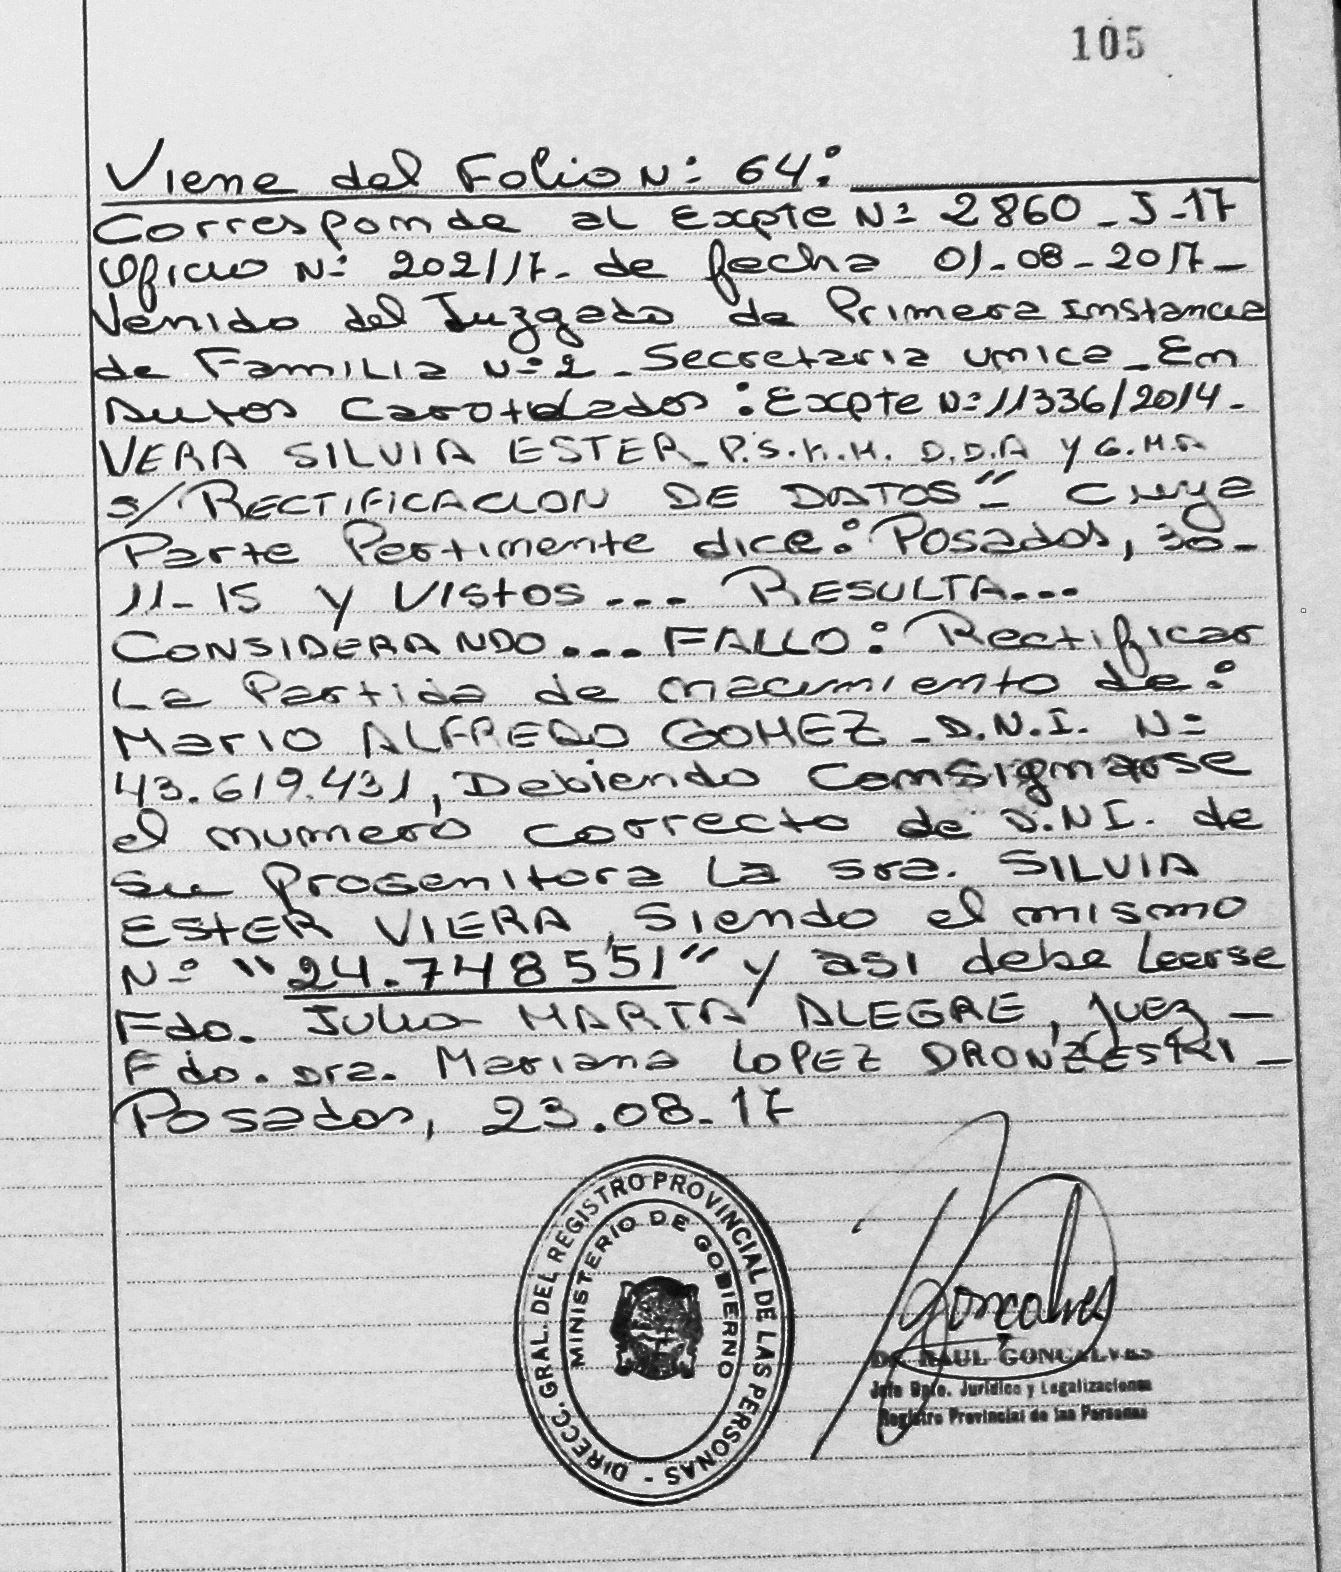 105
Viene del Folio Nº 64:
Corresponde al Expte Nº 2860-J-17
Oficio Nº 202/17- de fecha 01-08-2017-
Venido del Juzgado de Primera Instancia
de Familia Nº 2 - Secretaria unica - En
Autos Caratulados: Expte Nº 11336/2014-
VERA SILVIA ESTER - P.S.H.M. D.D.A y G.M.A
s/RECTIFICACION DE DATOS" - Cuya
Parte Pertinente dice: Posadas, 30-
11-15 y Vistos... RESULTA...
CONSIDERANDO... FALLO: Rectificar
La Partida de nacimiento de:
Mario ALFREDO GOMEZ - D.N.I. Nº
43.619.431, Debiendo Consignarse
el numero correcto de D.N.I. de
su Progenitora La sra. SILVIA
ESTER VIERA, Siendo el mismo
Nº "24.748551" y asi debe Leerse
Fdo. Julia MARTA ALEGRE, Juez -
Fdo. Dra. Mariana LOPEZ -
Posadas, 23.08-17
DIRECC. GRAL. DEL REGISTRO PROVINCIAL DE LAS PERSONAS -
MINISTERIO DE GOBIERNO
Gonçalves
Dr. RAUL GONCALVES
Jefe Dpto. Jurídico y Legalizaciones
Registro Provincial de las Personas